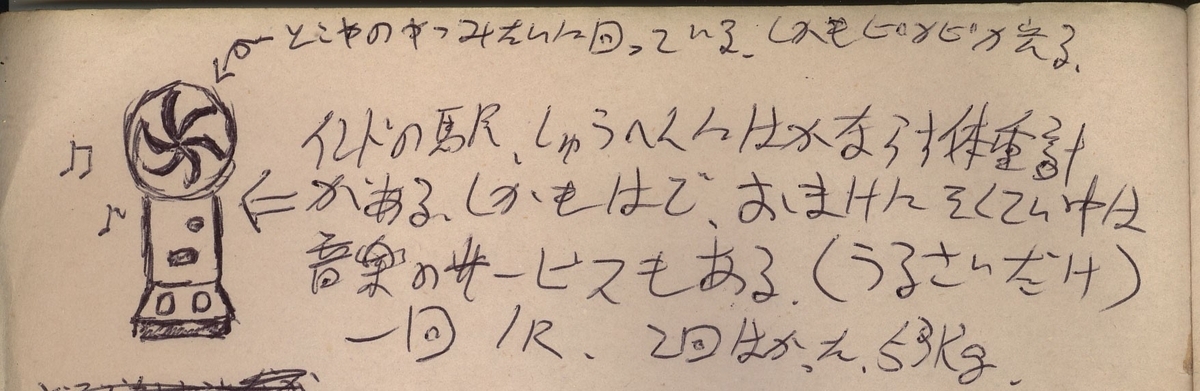 とこやのやつみたいに回っている。しかもピカピカ光る。
インドの駅、しゅうへんにはかならず体重計
がある。しかもはで、おまけにそくてい中は
音楽のサービスもある。(うるさいだけ)
一回 1R、 2回はかった。53Kg。